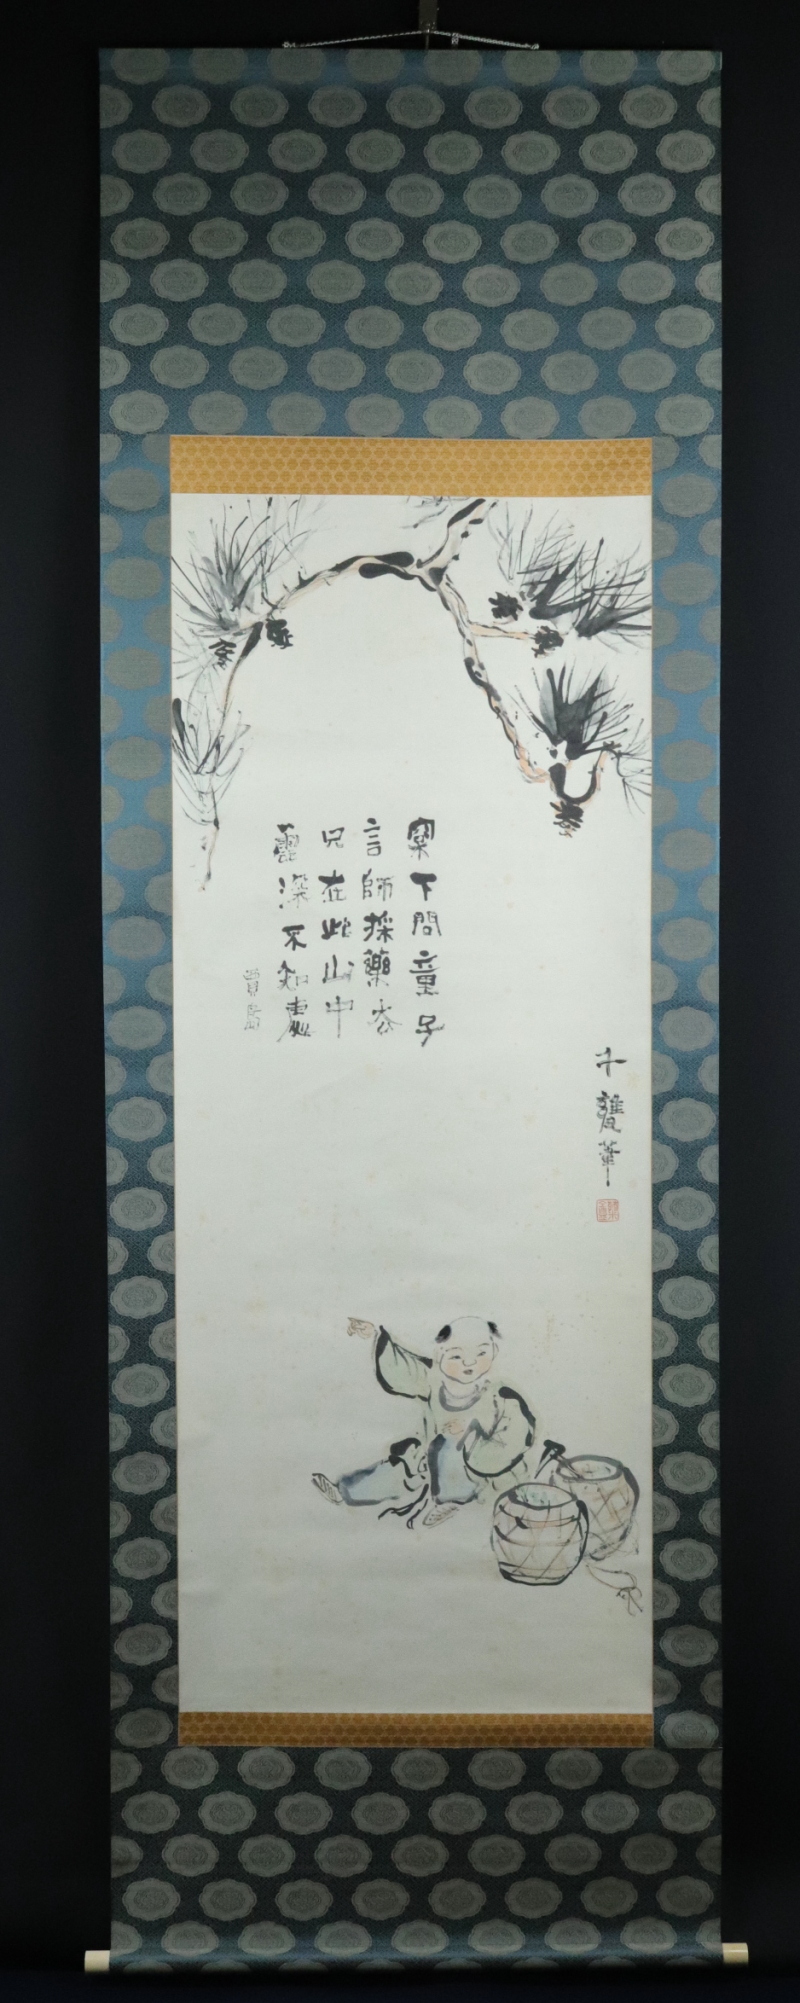 松下問童子
言師採藥去
只在此山中
雲深不知處
賈島
千甕筆